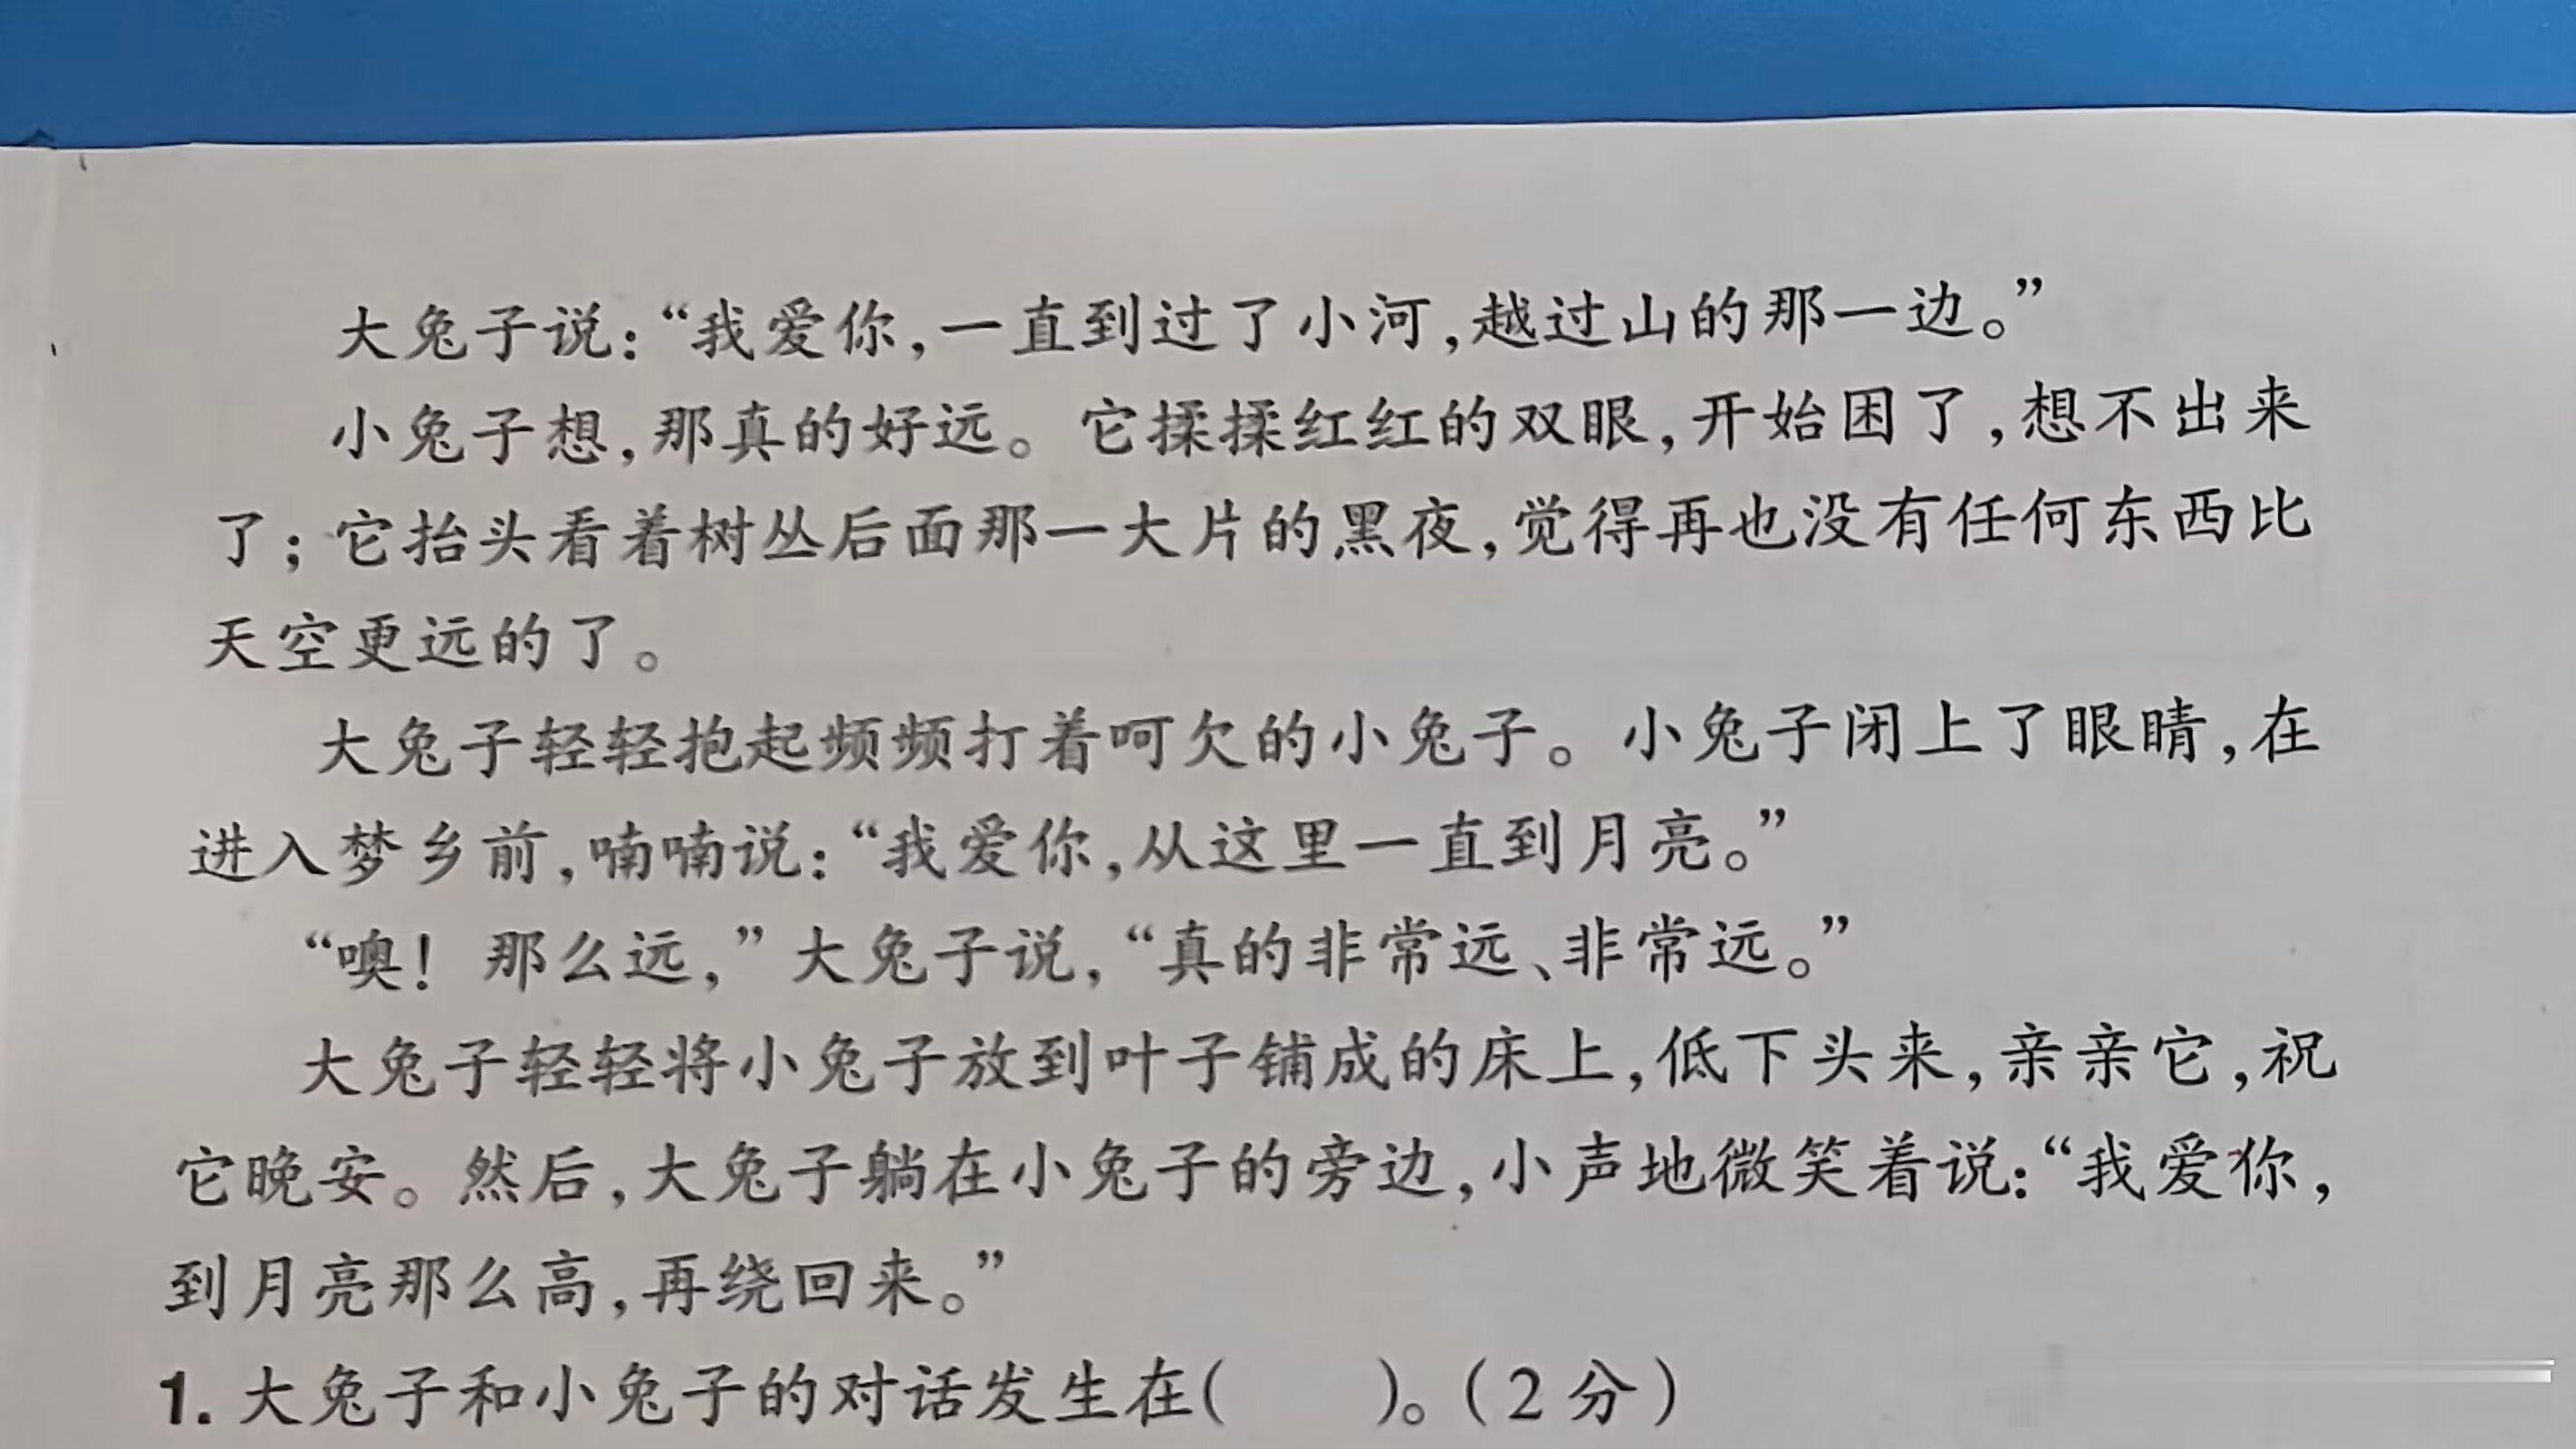 大兔子说：“我爱你，一直到过了小河，越过山的那一边。”
小兔子想，那真的好远。它揉揉红红的双眼，开始困了，想不出来
了；它抬头看着树丛后面那一大片的黑夜，觉得再也没有任何东西比
天空更远的了。
大兔子轻轻抱起频频打着呵欠的小兔子。小兔子闭上了眼睛，在
进入梦乡前，喃喃说：“我爱你，从这里一直到月亮。”
“噢！那么远，”大兔子说，“真的非常远、非常远。”
大兔子轻轻将小兔子放到叶子铺成的床上，低下头来，亲亲它，祝
它晚安。然后，大兔子躺在小兔子的旁边，小声地微笑着说：“我爱你，
到月亮那么高，再绕回来。”
1. 大兔子和小兔子的对话发生在（　　）。（2分）